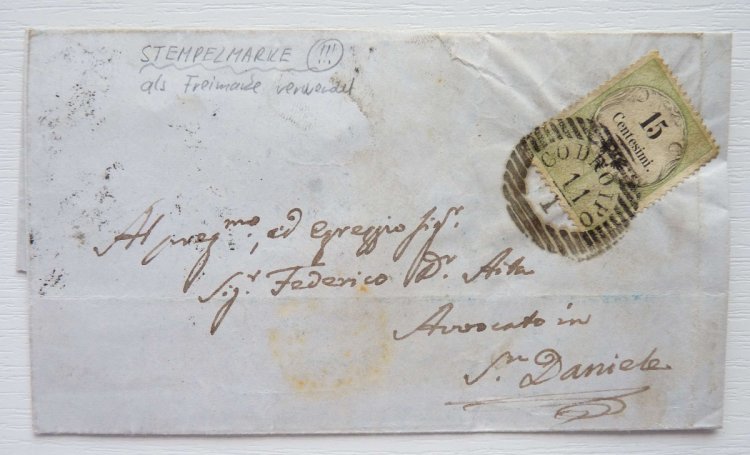 STEMPELMARKE (!!!)
als Freimarke verwendet
15
Centesimi.
CODROIPO
11
1
Al preg.mo, ed Egreggio Sigr.
Sigr. Federico Dr. Aita
Avvocato in
Sn. Daniele